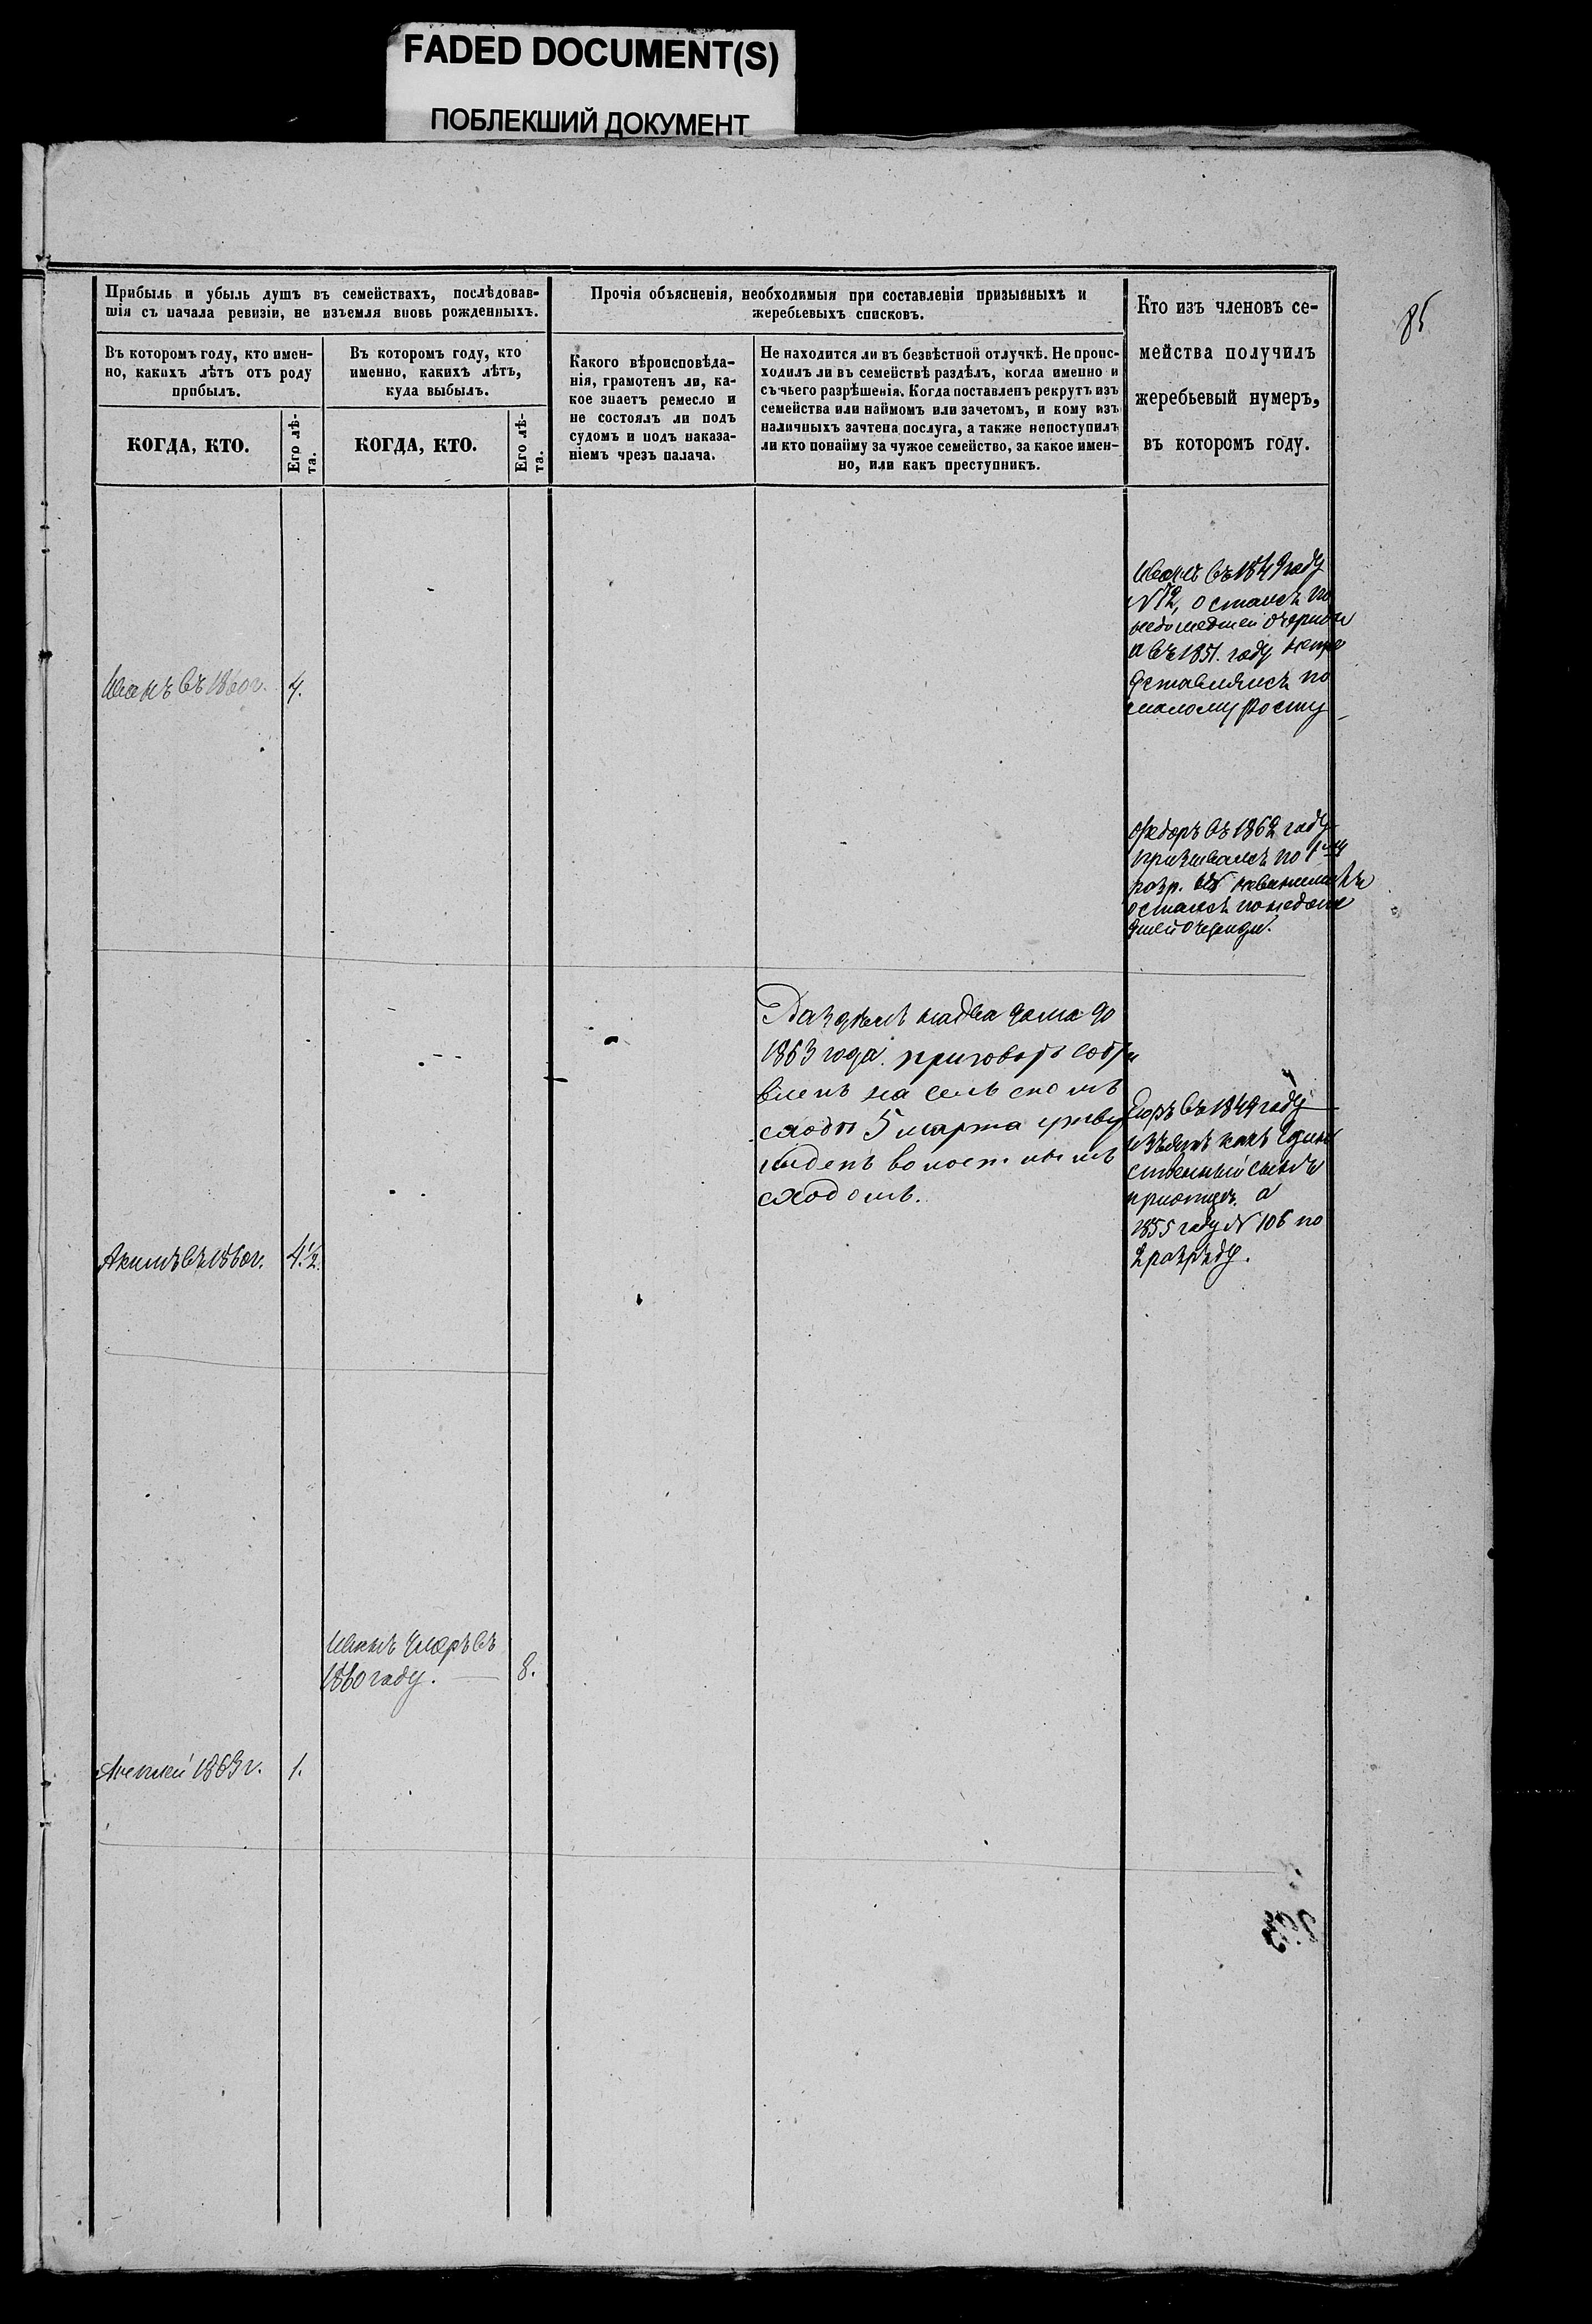 FADED DOCUMENT(S)
ПОБЛЕКШИЙ ДОКУМЕНТ
85
Прибыль и убыль душъ въ семействахъ, послѣдовав-
шія съ начала ревизіи, не изъемля вновь рожденныхъ.
Въ которомъ году, кто имен-
но, какихъ лѣтъ отъ роду
прибылъ.
КОГДА, КТО.
Его лѣ-
та.
Въ которомъ году, кто
именно, какихъ лѣтъ,
куда выбылъ.
КОГДА, КТО.
Его лѣ-
та.
Прочія объясненія, необходимыя при составленіи призывныхъ и
жеребьевыхъ списковъ.
Какого вѣроисповѣда-
нія, грамотенъ ли, ка-
кое знаетъ ремесло и
не состоялъ ли подъ
судомъ и подъ наказа-
ніемъ чрезъ палача.
Не находится ли въ безвѣстной отлучкѣ. Не проис-
ходилъ ли въ семействѣ раздѣлъ, когда именно и
съ чьего разрѣшенія. Когда поставленъ рекрутъ изъ
семейства или наймомъ или зачетомъ, и кому изъ
наличныхъ зачтена послуга, а также непоступилъ
ли кто понайму за чужое семейство, за какое имен-
но, или какъ преступникъ.
Кто изъ членовъ се-
мейства получилъ
жеребьевый нумеръ,
въ которомъ году.
Иванъ въ 1849 году
N 12, остался по
недошедшей очереди
а въ 1851. году непре
дставлялся по
малому росту
Иванъ въ 1860 г. 4.
Федоръ въ 1862 году
призывался по 1му
разр.
остался по недоше
дшей очереди.
Раздѣлъ на два дома до
1863 года. приговоръ
на сельскомъ
сходѣ 5 марта утвер
жденъ волостнымъ
сходомъ.
въ 1849 году
изъятъ какъ един
ственный сынъ
при отцѣ. а
1855 году N 106 по
2 разряду.
Акимъ въ 1860 г. 4 1/2.
Иванъ умеръ въ
1860 году. 8.
Алексей 1863 г. 1.